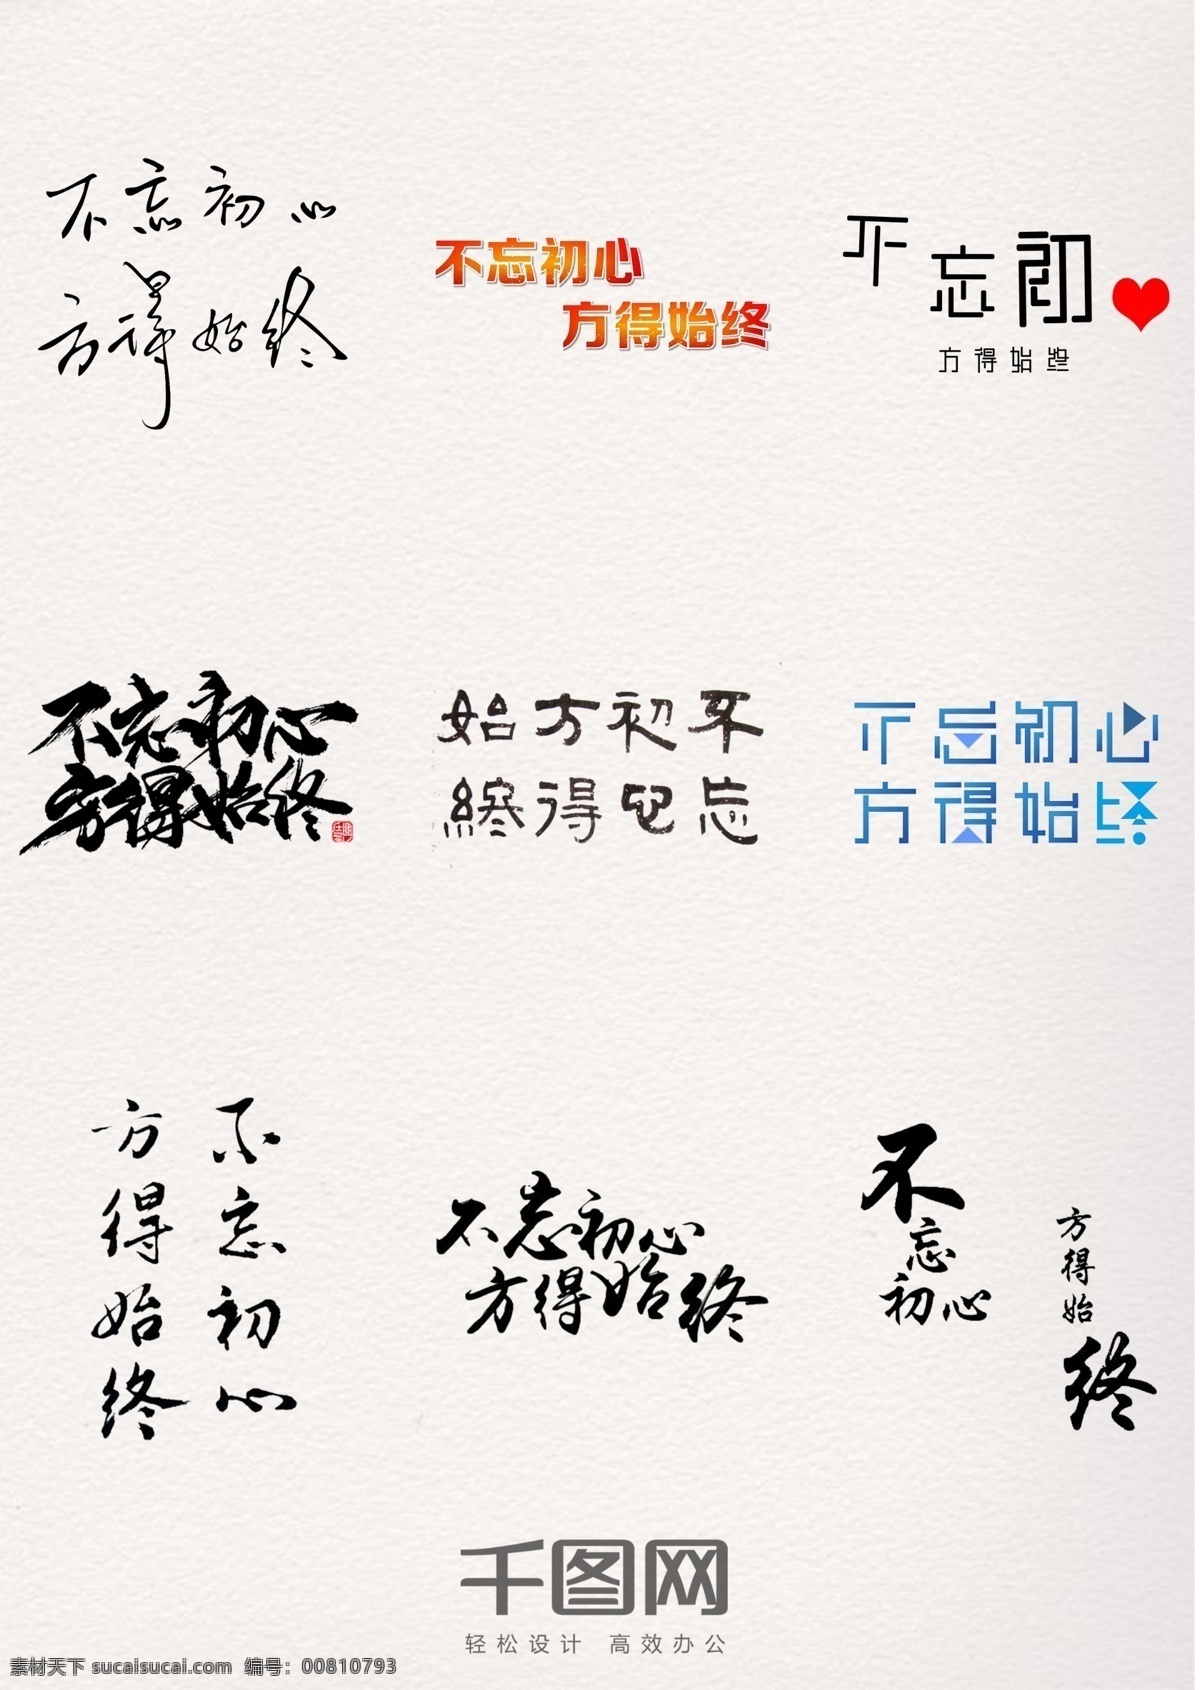 不忘初心
方得始终
不忘初心
方得始终
不忘初
方得始终
不忘初心
方得始终
始方初不
終得心忘
不忘初心
方得始终
不忘初心
方得始终
不忘初心
方得始终
不
忘
初心
方得始
终
千图网
轻松设计 高效办公
素材天下 sucaisucai.com 编号：00810793